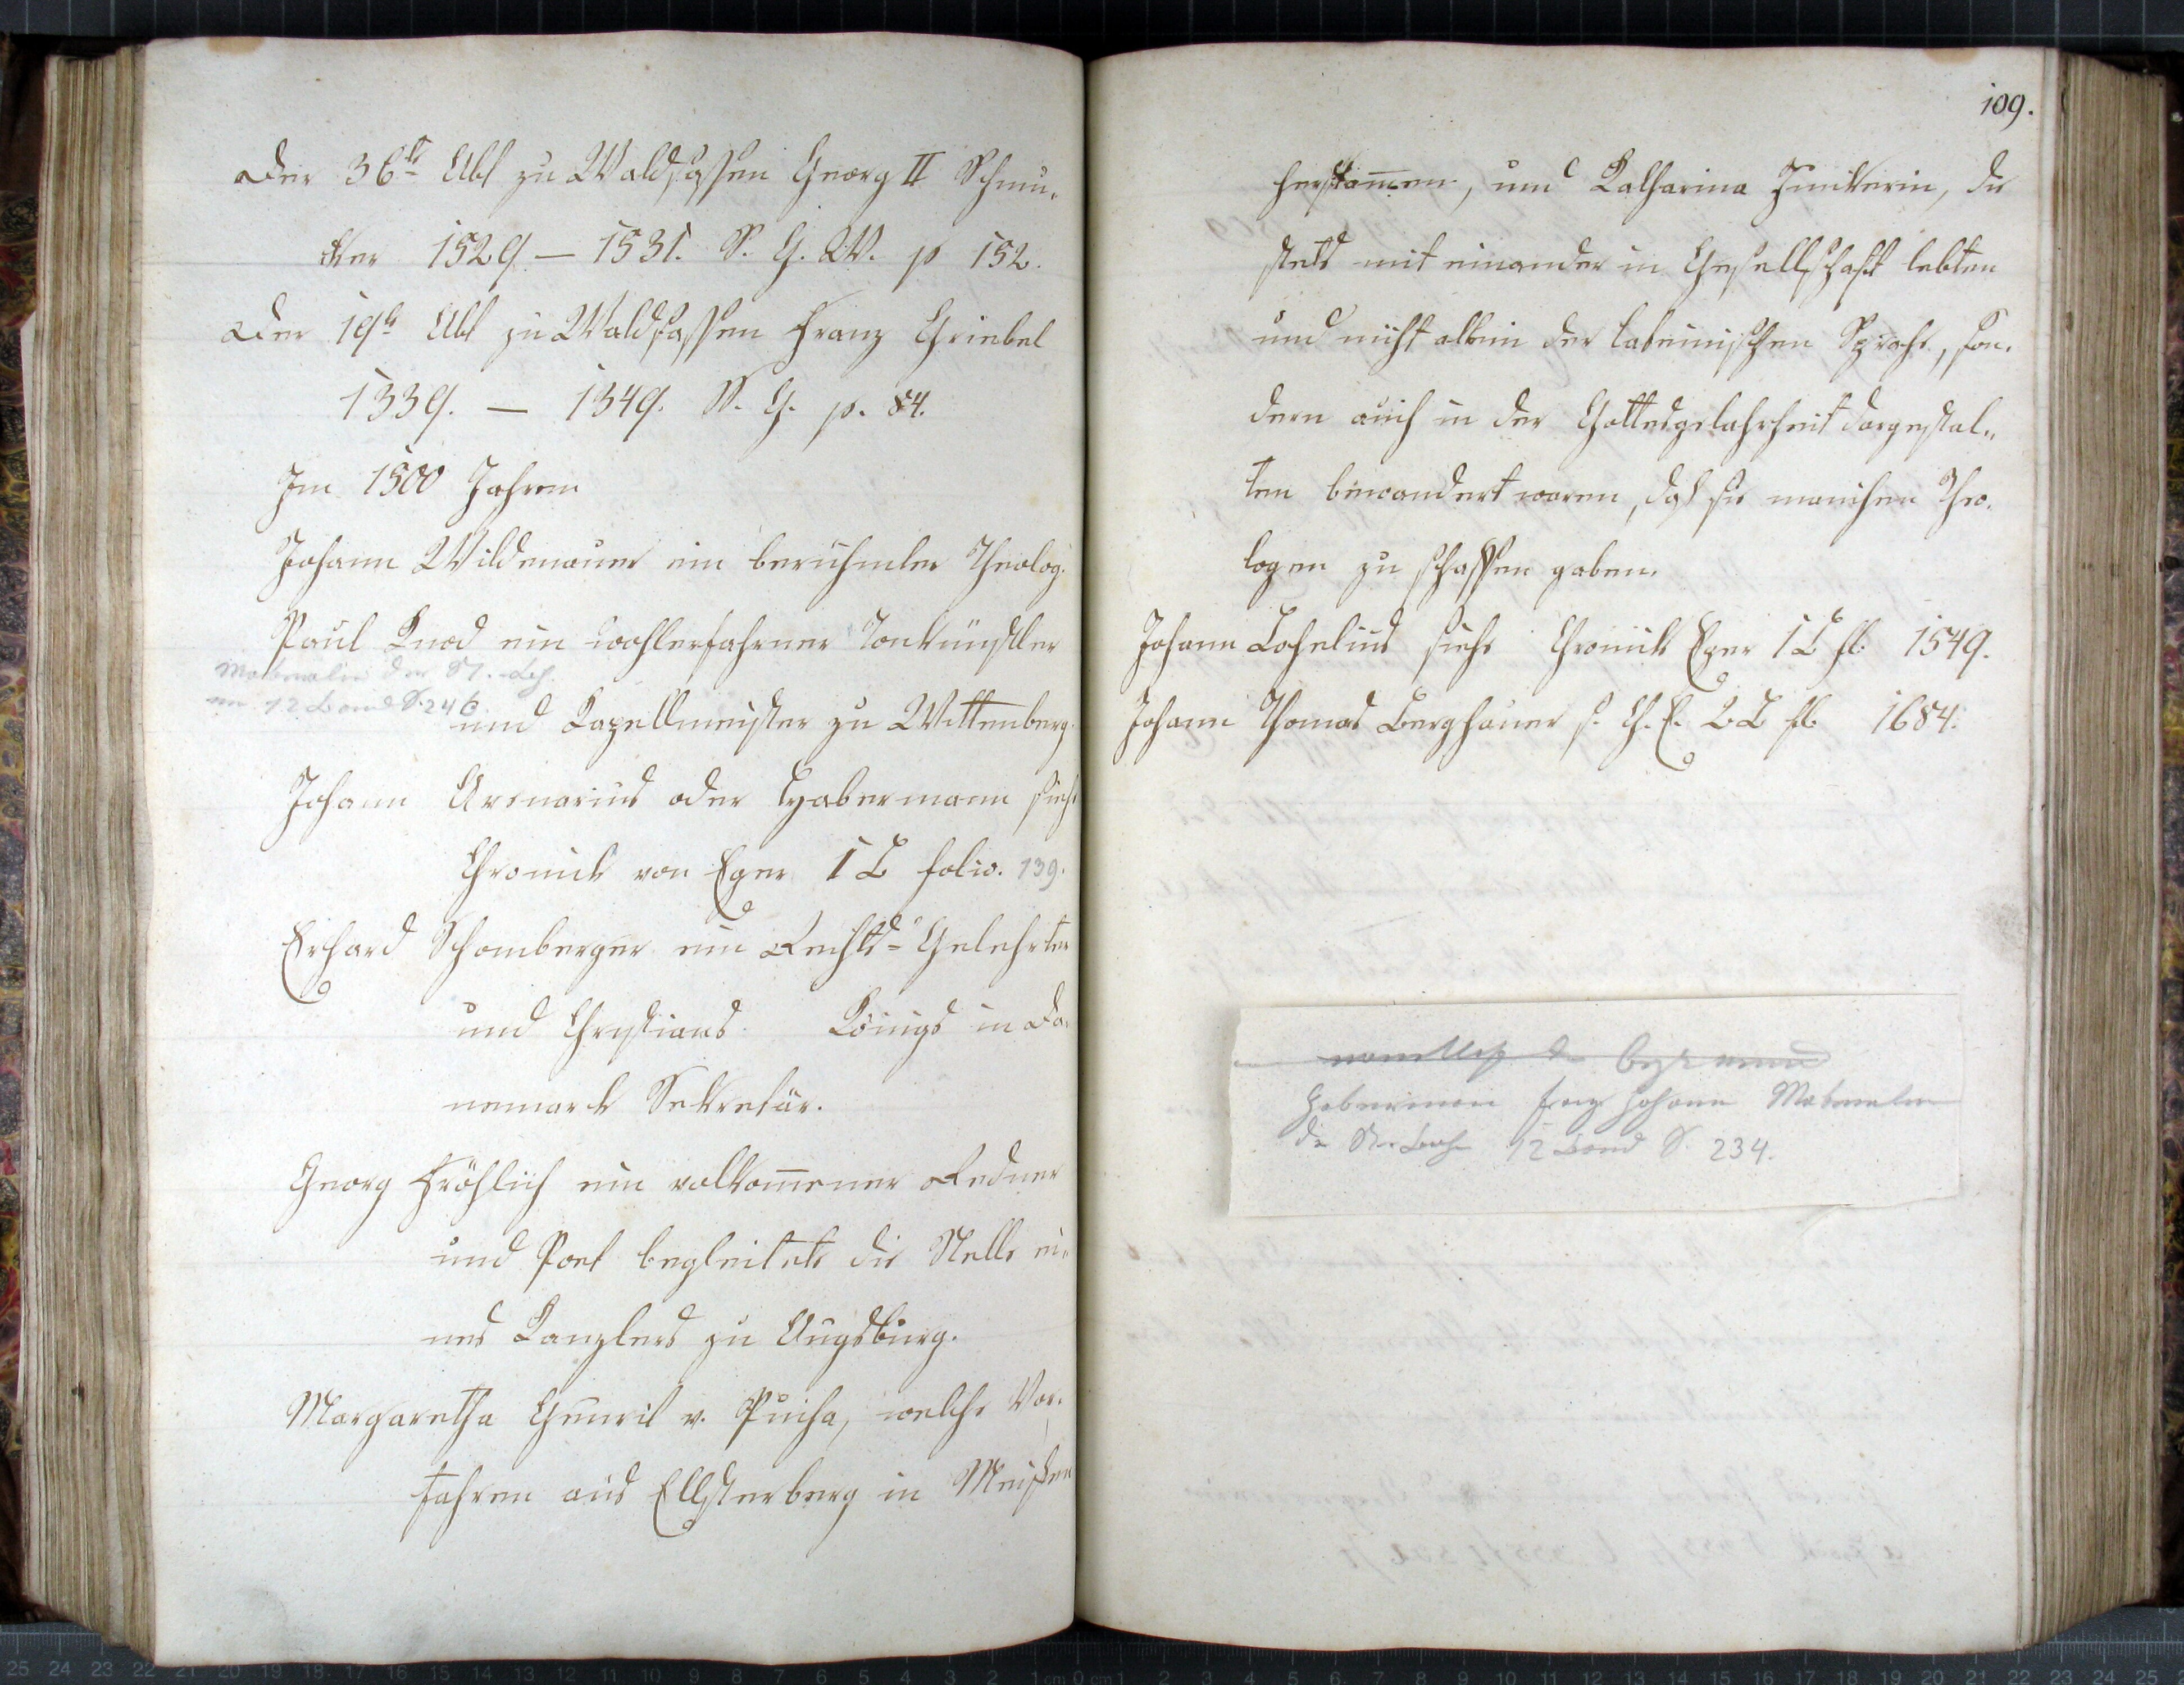 Der 36te Abt zu Waldsassen Georg II Schmu-
cker 1529 — 1531. S. G. W. p 152.
Der 19te Abt zu Waldsassen Franz Griebel
1339. — 1349. S. G. p. 84.
Im 1500 Jahren
Johann Wildenauer ein berühmter Theolog.
Paul Knod ein wohlerfahrner Tonkünstler
Materalien der St.
12 Band S. 246.
und Kapellmeister zu Wittenberg.
Johann Avenarius oder Habermann siehe
Chronick von Eger 1 B folio. 139.
Erhard Schomberger ein Rechts-Gelehrter
und Christians Königs in Dä-
nemark Sekretär.
Georg Fröhlich ein vollkom̅ener Redner
und Poet begleitete die Stelle ei-
nes Kanzlers zu Augsburg.
Margaretha v. welche Vor-
fahren aus Ellsterberg in Meißen
109.
herstam̅en, und Katharina Junkerin, die
stets mit einander in Gesellschaft lebten
und nicht allein der lateinischen Sprache, son-
dern auch in der Gottesgelahrheit dergestal-
ten bewandert waren, daß sie manchen Theo-
logen zu schaffen gaben.
Johann siehe Chronick Eger 1 B fl: 1549.
Johann Thomas Berghauer s. Ch. E. 2 B fl. 1684.
Haberman Johann
12 Band S. 234.